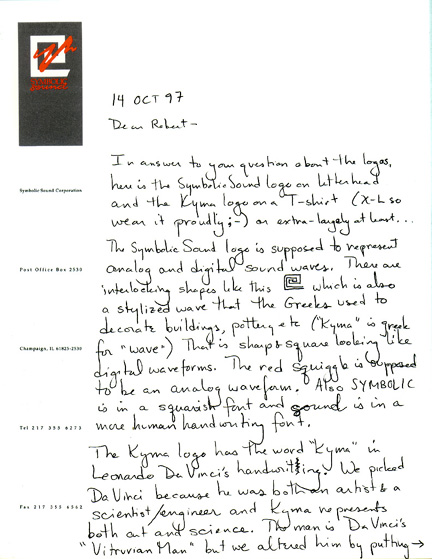 SYMBOLIC
sound
14 OCT 97
Dear Robert-
In answer to your question about the logos,
here is the Symbolic Sound logo on letterhead
and the Kyma logo on a T-shirt (X-L so
wear it proudly ;-) or extra-largely at least...
Symbolic Sound Corporation
The Symbolic Sound logo is supposed to represent
analog and digital sound waves. There are
Post Office Box 2530
interlocking shapes like this which is also
a stylized wave that the Greeks used to
decorate buildings, pottery etc ("Kyma" is greek
for "wave") That is sharp & square looking like
Champaign, IL 61825-2530
digital waveforms. The red squiggle is supposed
to be an analog waveform. Also SYMBOLIC
is in a squarish font and sound is in a
more human handwriting font.
Tel 217 355 6273
The Kyma logo has the word "Kyma" in
Leonardo Da Vinci's handwriting. We picked
Da Vinci because he was both an artist & a
scientist/engineer and Kyma represents
Fax 217 355 6562
both art and science. The man is Da Vinci's
"Vitruvian Man" but we altered him by putting →